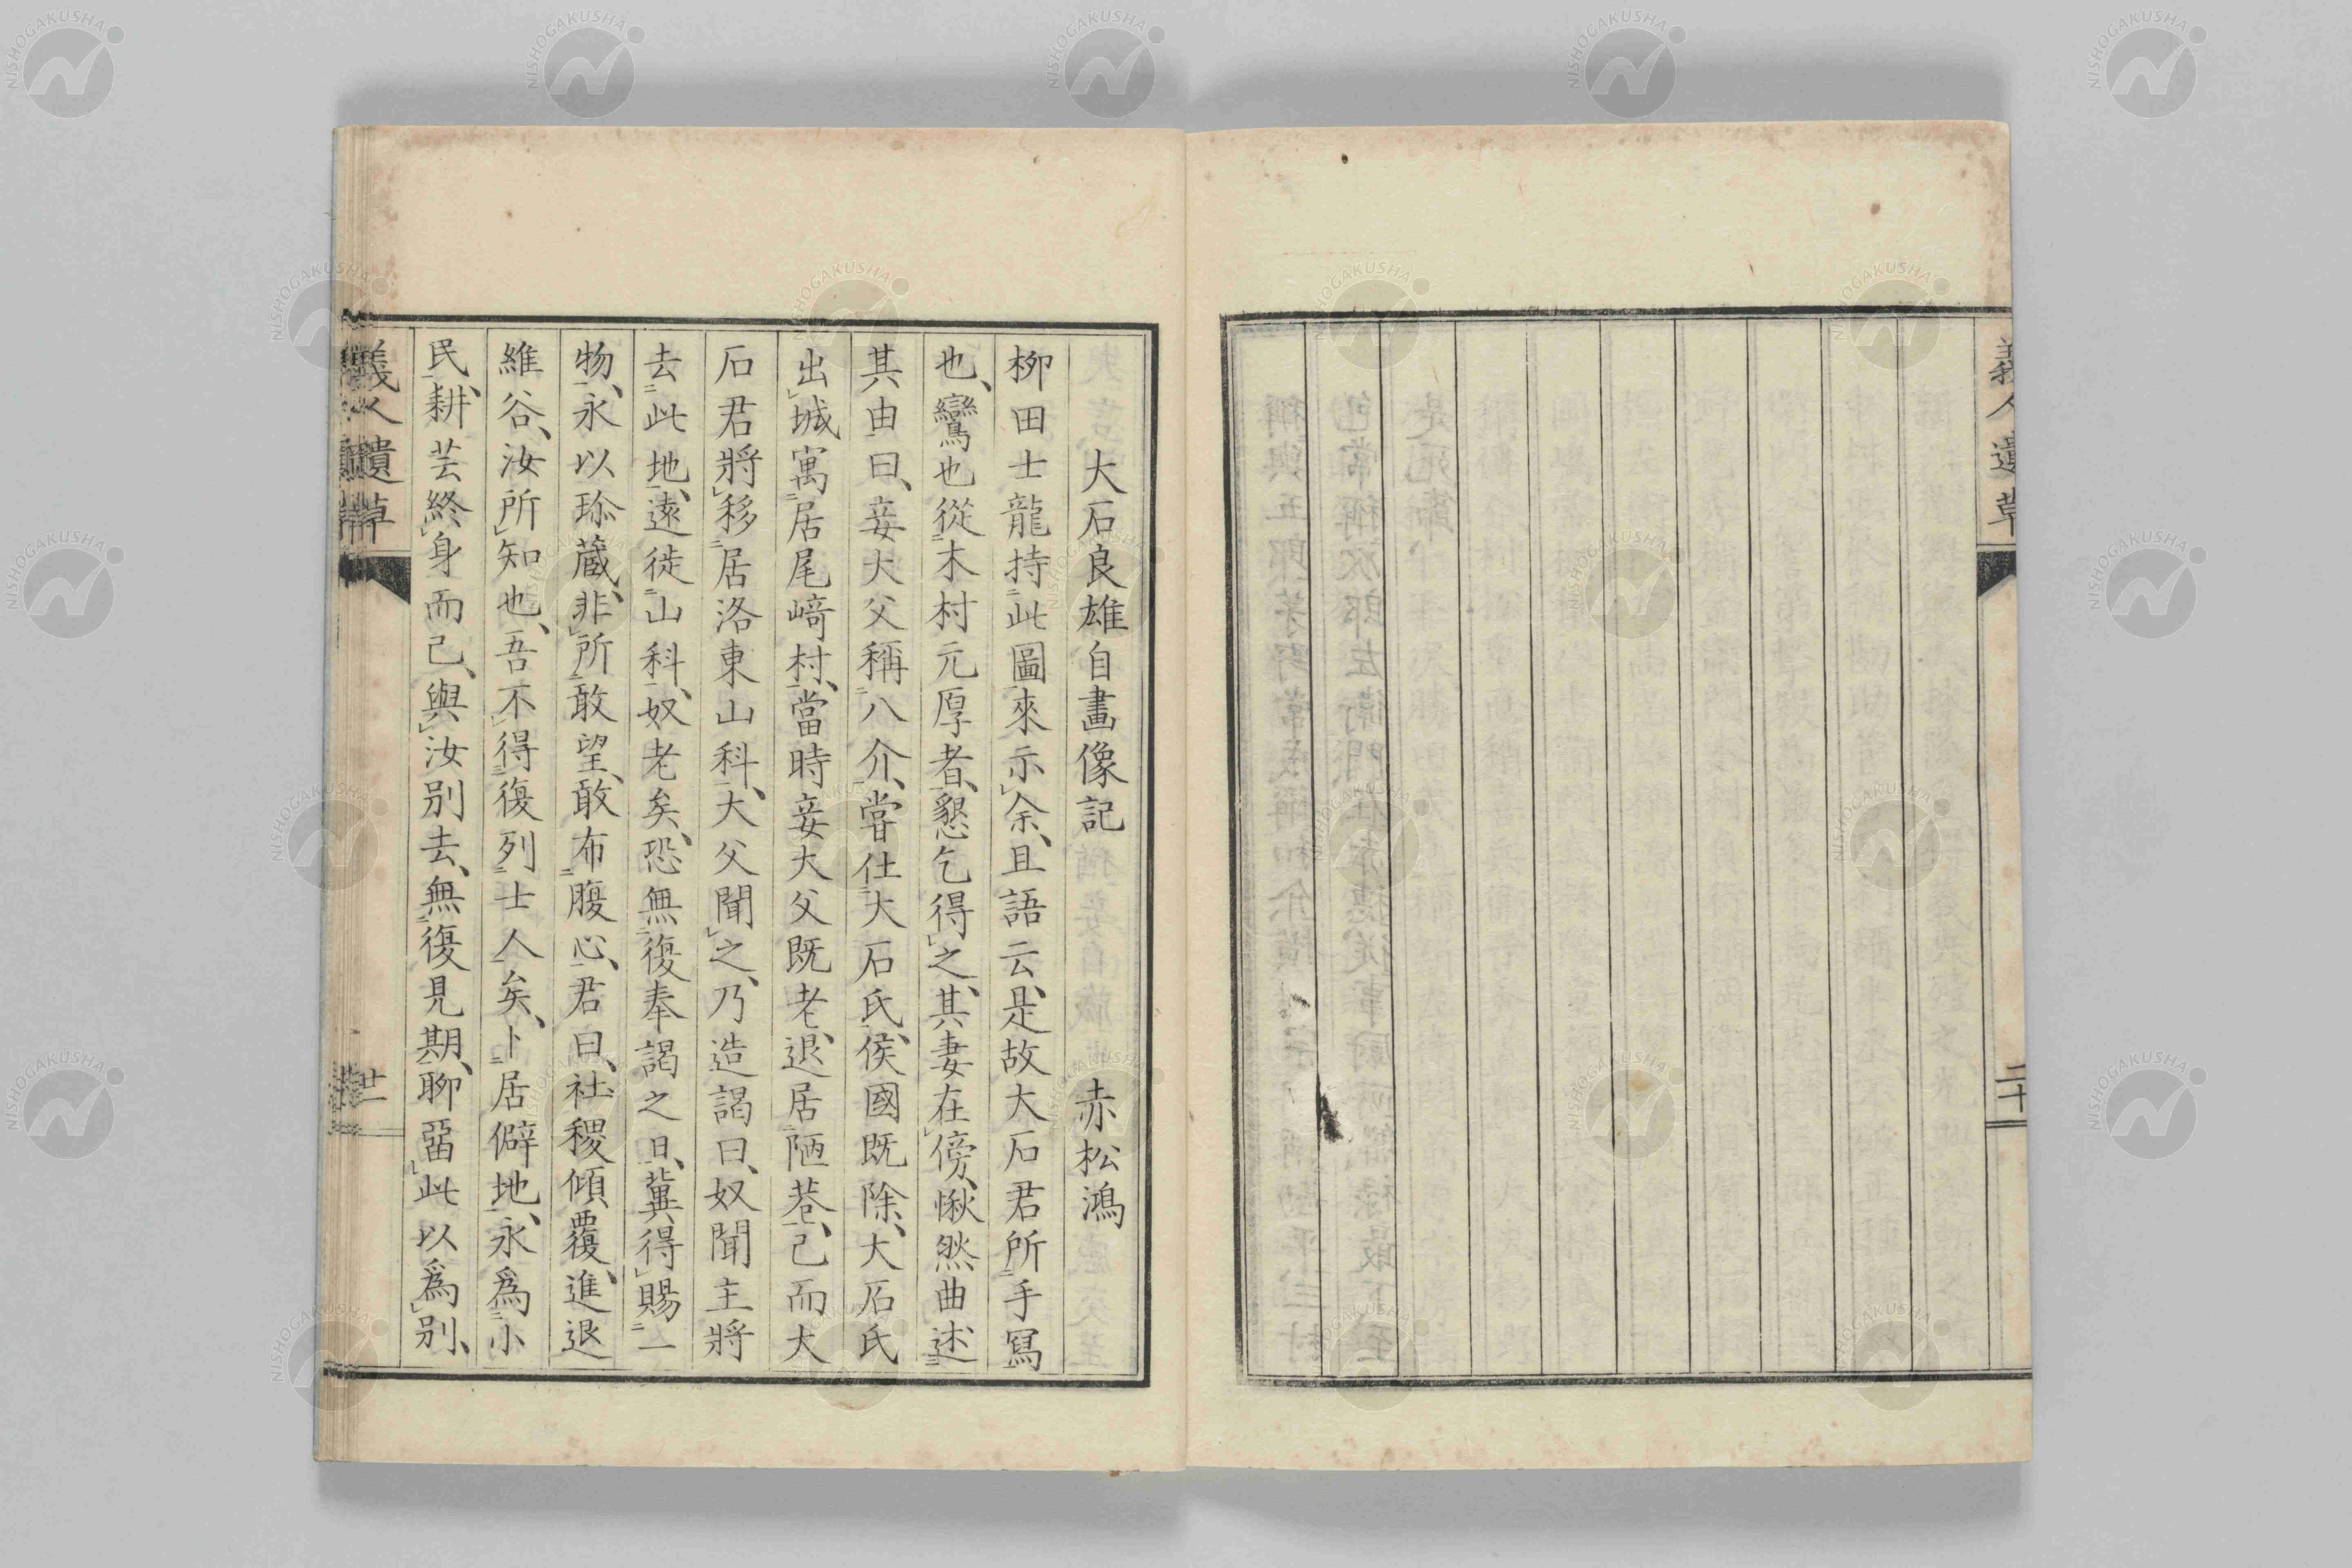 義人遺草
二十
大石良雄自畫像記 赤松鴻
柳田士龍持此圖來示余、且語云、是故大石君所手寫
也、鸞也從木村元厚者、懇乞得之、其妻在傍、愀然曲述
其由曰、妾大父稱八介、嘗仕大石氏、侯國既除、大石氏
出城寓居尾﨑村、當時妾大父既老、退居陋巷、己而大
石君將移居洛東山科、大父聞之、乃造謁曰、奴聞主將
去此地、遠徙山科、奴老矣、恐無復奉謁之日、冀得賜一
物、永以珎蔵、非所敢望、敢布腹心、君曰、社稷傾覆、進退
維谷、汝所知也、吾不得復列士人矣、卜居僻地、永爲小
民、耕芸終身而己、與汝別去、無復見期、聊畱此以爲別、
義人遺草
廿一
NISHOGAKUSHA